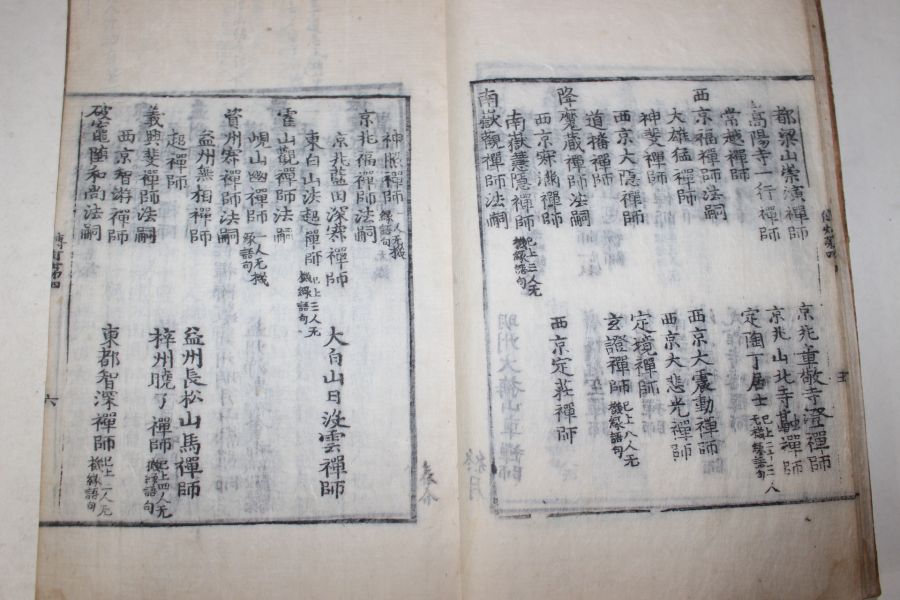 都梁山崇演禪師　京兆重敬寺澄禪師
嵩陽寺一行禪師　京兆山北寺融禪師
常越禪師　定陶丁居士
西京福禪師法嗣
大雄猛禪師　西京大震動禪師
神斐禪師　西京大悲光禪師
西京大隱禪師　定境禪師
道播禪師　玄證禪師 已上八人无機緣語句
降魔藏禪師法嗣
西京寂滿禪師　西京定莊禪師
南嶽慧隱禪師 已上三人无機緣語句
南嶽觀禪師法嗣
神照禪師 一人无機緣語句
京兆福禪師法嗣
京兆藍田深寂禪師　大白山日沒雲禪師
東白山法起禪師 已上三人无機緣語句
霍山觀禪師法嗣
峴山幽禪師 一人无機緣語句
資州寂禪師法嗣
益州無相禪師　益州長松山馬禪師
超禪師　梓州曉了禪師 已上四人无機緣語句
義興斐禪師法嗣
西京智游禪師　東都智深禪師 已上二人无機緣語句
破竈墮和尚法嗣
傳灯第四
六